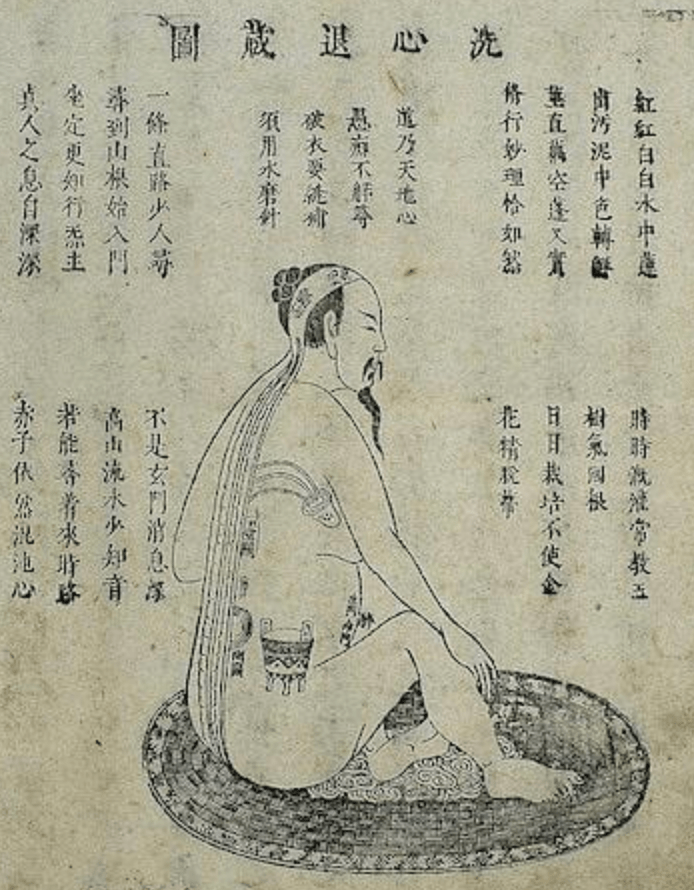 洗心退藏圖
紅紅白白水中蓮
出汚泥中色轉鮮
莖直藕空蓬又實
修行妙理恰如然
道乃天地心
愚癡不解尋
破衣要線補
須用水磨針
一條直路少人尋
尋到山根始入門
坐定更知行炁主
真人之息自深深
時時溉灌常教玉
樹氣囬根
日日栽培不使金
花精脫蒂
不是玄門消息深
高山流水少知音
若能尋着來時路
赤子依然混沌心